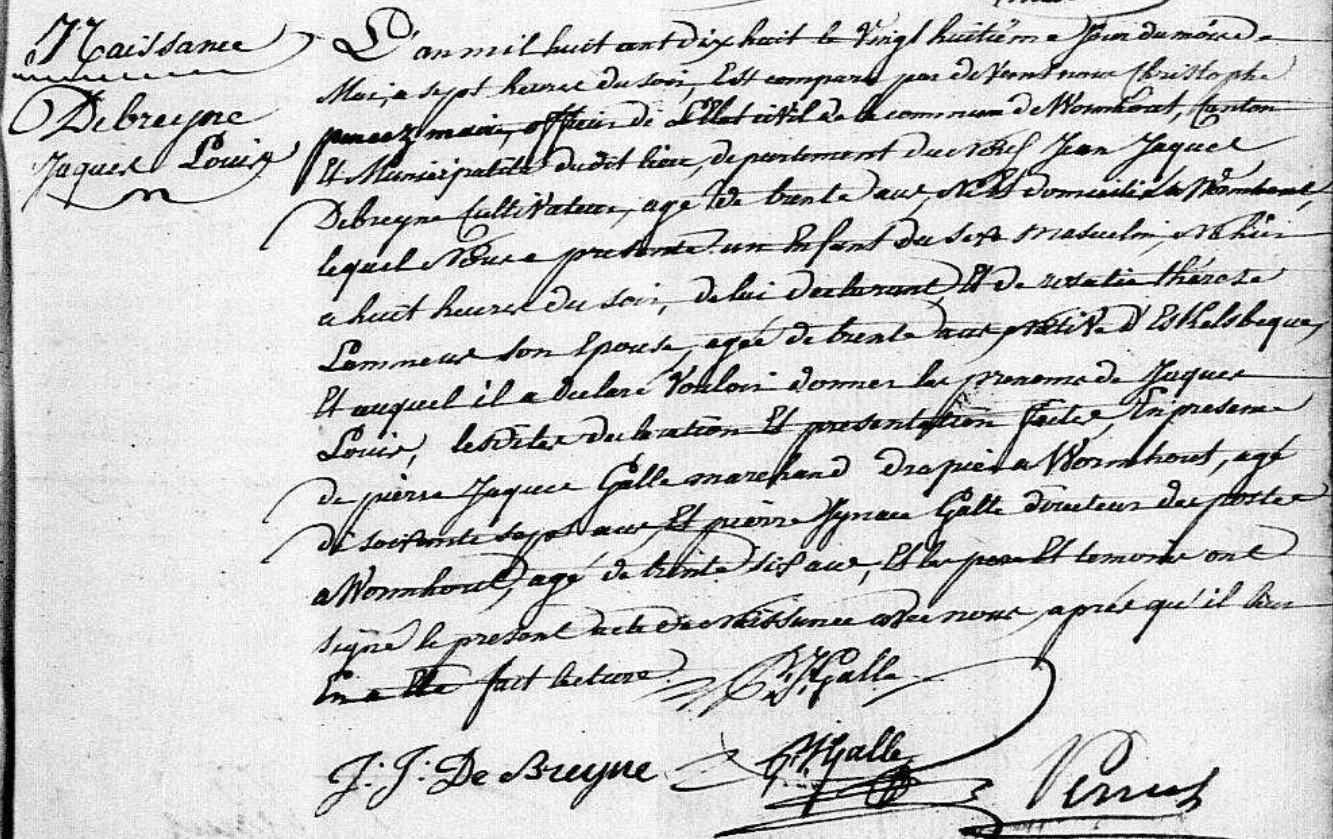 Naissance
Debreyne
Jaques Louis
L'an mil huit cent dix huit le vingt huitieme jour du mois de
Mai, a sept heures du soir, Est comparu par devant nous Christophe
maire, officier de L'Etat civil de la commune de Wormhout, Canton
Et Municipalité dudit lieu, departement du nord Jean Jaques
Debreyne Cultivateur, agé de trente ans, Né Et domicilié a Wormhout,
lequel Nous a presenté un Enfant du sexe masculin, né hier
a huit heures du soir, de lui declarant, Et de rosalie thérèse
son Epouse, agée de trente ans native d'Eskelsbeque,
Et auquel il a declaré vouloir donner les prenoms de Jaques
Louis, lesdites declaration Et presentation faites, En presence
de pierre Jaques Galle marchand drapier a Wormhout, agé
de soixante sept ans, Et pierre Ignace Galle directeur des postes
a Wormhout, agé de trente six ans, Et les pere Et temoins ont
signé le present acte de Naissance avec nous, après qu'il leur
En a Eté fait lecture.
P. J. Galle
J: J: De Breyne
P. I. Galle